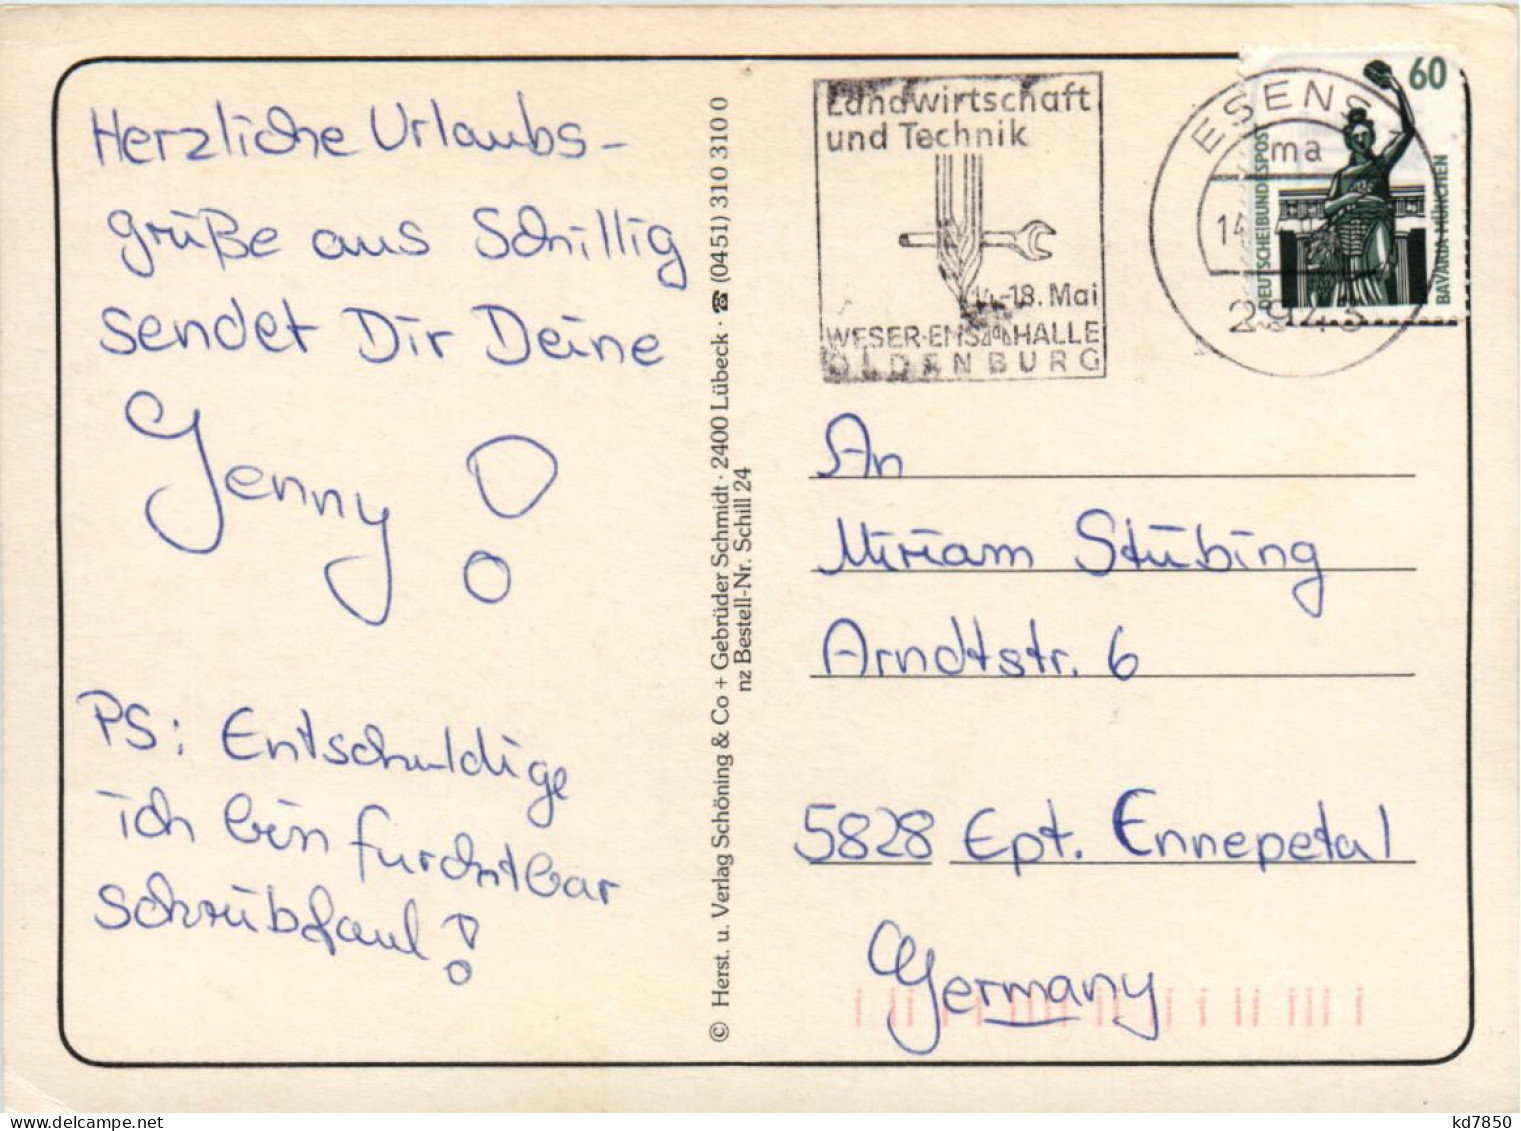 Herzliche Urlaubs-
grüße aus Schillig
sendet Dir Deine
Jenny!
PS: Entschuldige
ich bin furchtbar
schreibfaul!
© Herst. u. Verlag Schöning & Co + Gebrüder Schmidt · 2400 Lübeck · ☎ (0451) 310 310 0
nz Bestell-Nr. Schill 24
Landwirtschaft
und Technik
14.-18. Mai
WESER-EMS HALLE
OLDENBURG
ESENS
ma
14
2943
60
DEUTSCHE BUNDESPOST
BAVARIA MÜNCHEN
An
Miriam Stübing
Arndtstr. 6
5828 Ept. Ennepetal
Germany
kd7850